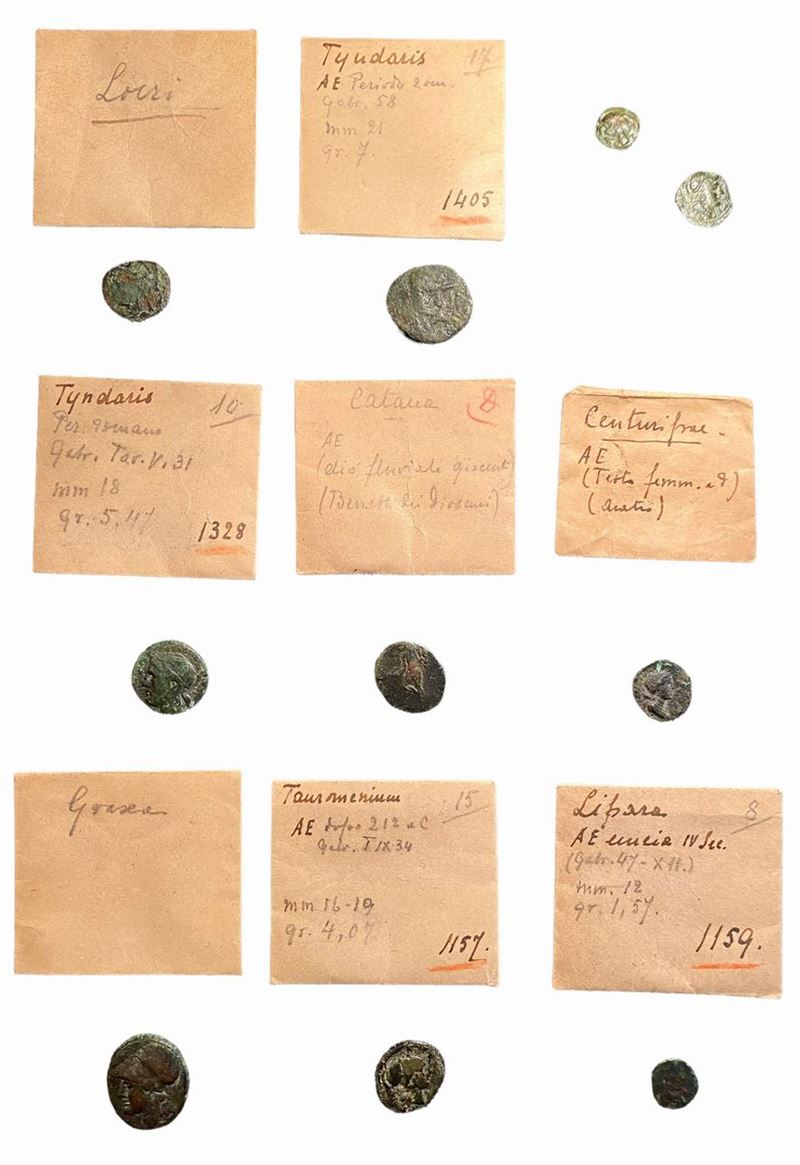 Locri
Tyndaris 17
AE Periodo rom.
Gabr. 58
mm 21
gr. 7.
1405
Tyndaris 10
Per. romano
Gabr. Tav. V. 31
mm 18
gr. 5,47
1328
Catana 8
AE
(dio fluviale
(Berretti dei Dioscuri)
Centuripae.
AE
(Testa femm. a d)
(aratro)
Tauromenium 15
AE dopo 212 a C
Gabr. T IX 34
mm 16-19
gr. 4,07
1157.
Lipara 8
AE uncia IV Sec.
(Gabr. 47-XII.)
mm. 12
gr. 1,57.
1159.